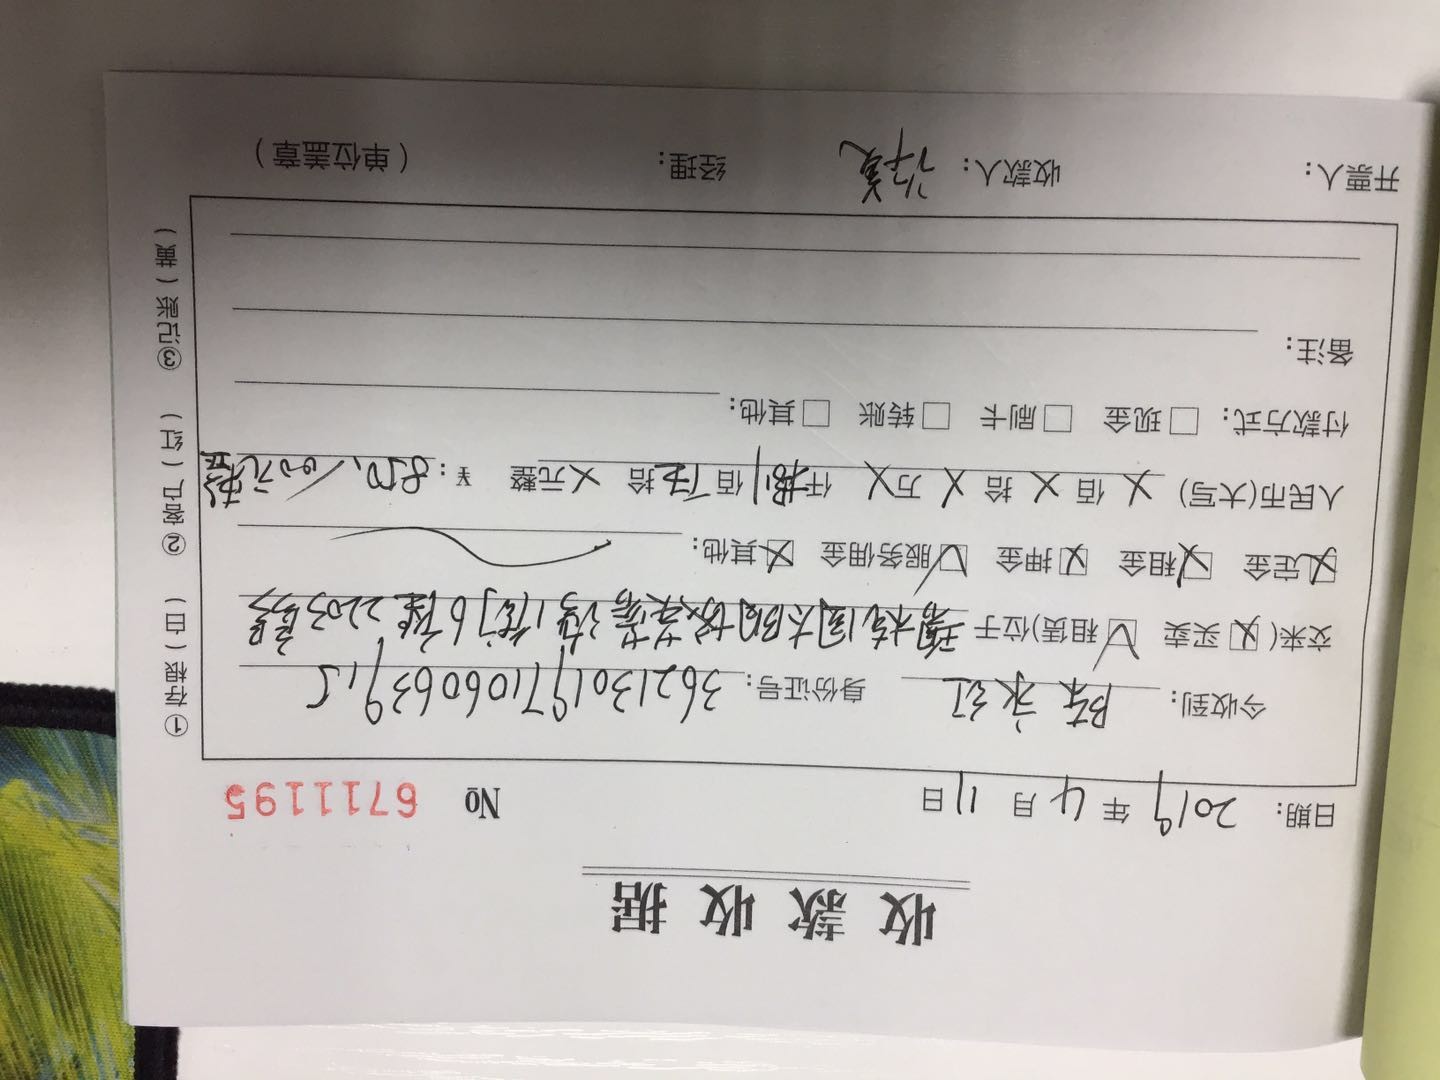 收款收据
日期: 2019 年 4 月 11 日 № 6711195
今收到: 陈永红 身份证号: 362130197106063915
交来( 买卖 租赁)位于 6 2203号
定金 租金 押金 服务佣金 其他:
人民币(大写) X 佰 X 拾 X 万 X 仟 捌 佰 伍 拾 X 元整 ¥: 850.00元整
付款方式: □ 现金 □ 刷卡 □ 转账 □ 其他:
备注:
开票人: 收款人: 许 经理: (单位盖章)
①存根(白) ②客户(红) ③记账(黄)